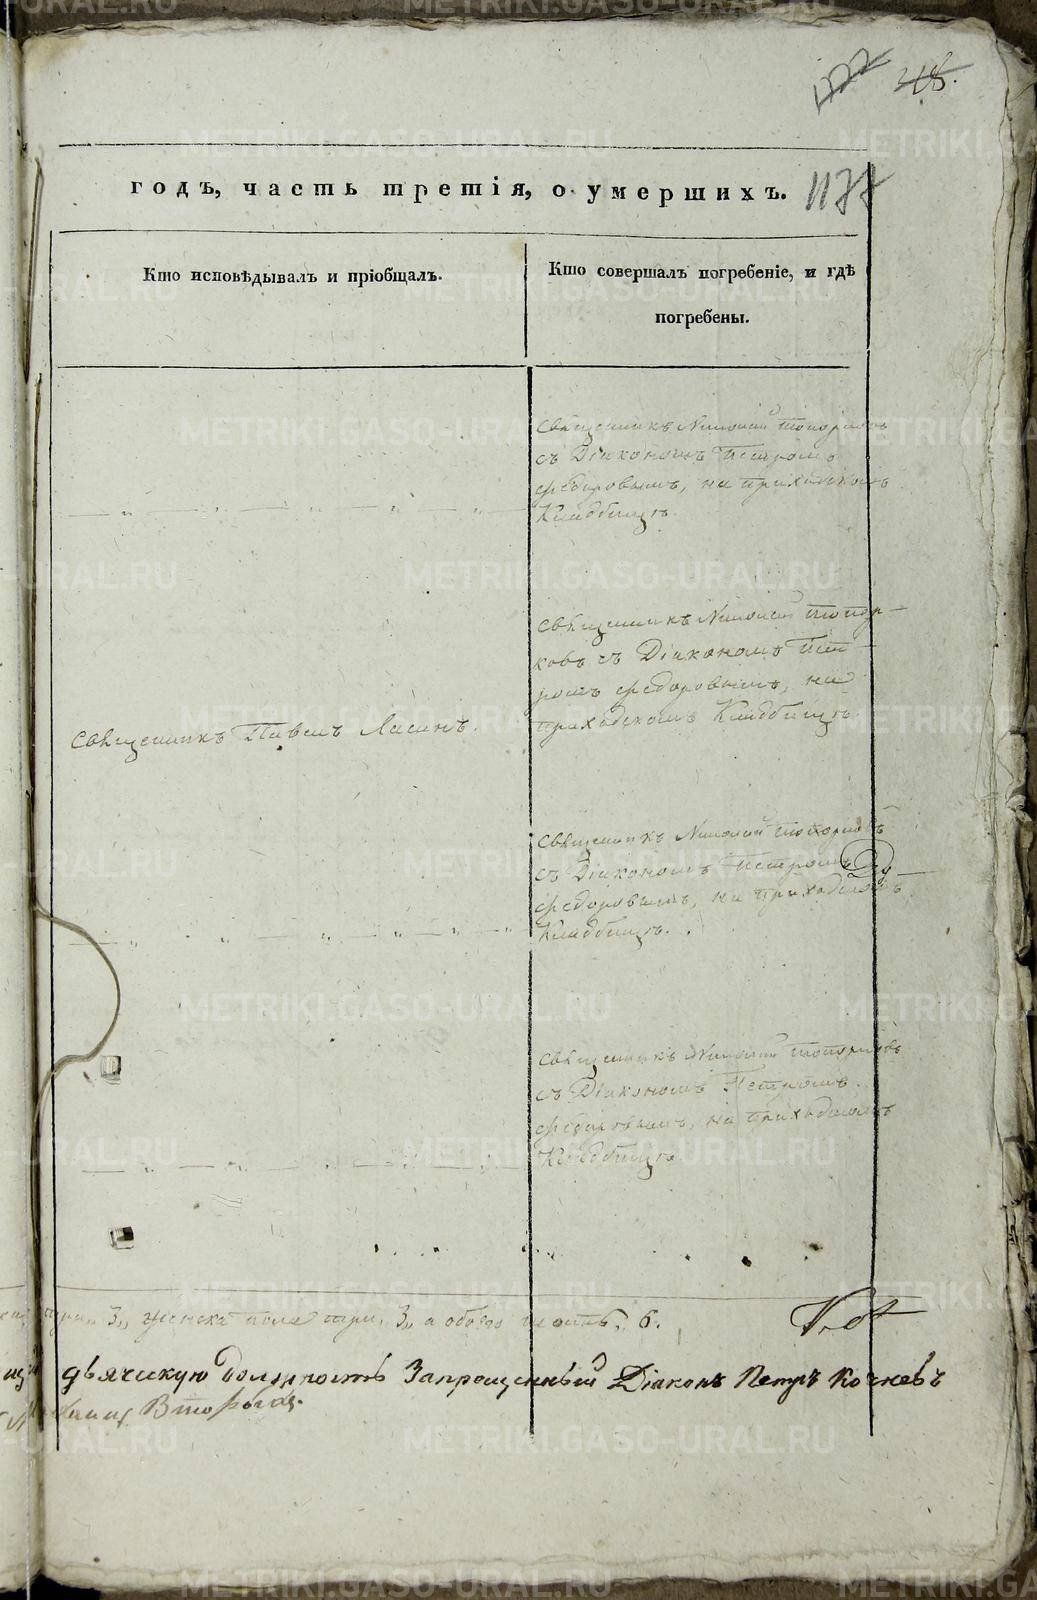 318.
годъ, часть третія, о умершихъ. 1177
Кто исповѣдывалъ и пріобщалъ.
Кто совершалъ погребеніе, и гдѣ
погребены.
Священникъ Николай Топорковъ
съ Діакономъ Петромъ
Федоровымъ, на приходскомъ
Кладбищѣ.
Священникъ Николай Топор-
ковъ съ Діакономъ Пет-
ромъ Федоровымъ, на
приходскомъ Кладбищѣ.
Священникъ Павелъ Ласинъ.
Священникъ Николай Топорковъ
съ Діакономъ Петромъ
Федоровымъ, на приходскомъ
Кладбищѣ.
Священникъ Николай Топорковъ
съ Діакономъ Петромъ
Федоровымъ, на приходскомъ
Кладбищѣ.
три, 3,, женска пола три, 3,, а обоего шесть, 6.
дьячкскую должность Запрещенный Діаконъ Петръ Кочневъ
Вторыхъ.
METRIKI.GASO-URAL.RU